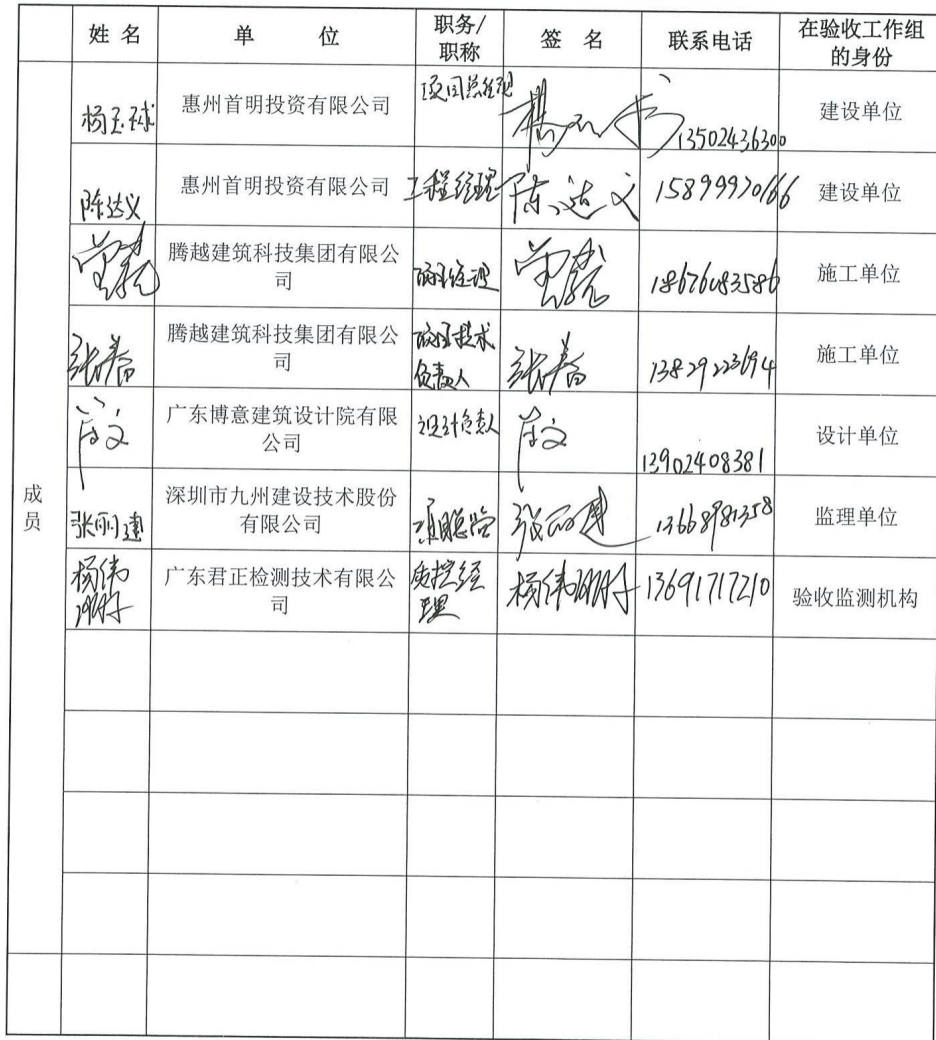 姓名 单位 职务/职称 签名 联系电话 在验收工作组的身份
成员
杨玉球 惠州首明投资有限公司 项目总经理 13502436300 建设单位
陈达义 惠州首明投资有限公司 工程经理 陈达义 15899970166 建设单位
腾越建筑科技集团有限公司 项目经理 18676083586 施工单位
张春 腾越建筑科技集团有限公司 项目技术负责人 张春 13829223694 施工单位
广东博意建筑设计院有限公司 设计负责人 13902408381 设计单位
张丽建 深圳市九州建设技术股份有限公司 项目总监 张丽建 13668981358 监理单位
杨伟 广东君正检测技术有限公司 质控经理 杨伟 13691717210 验收监测机构